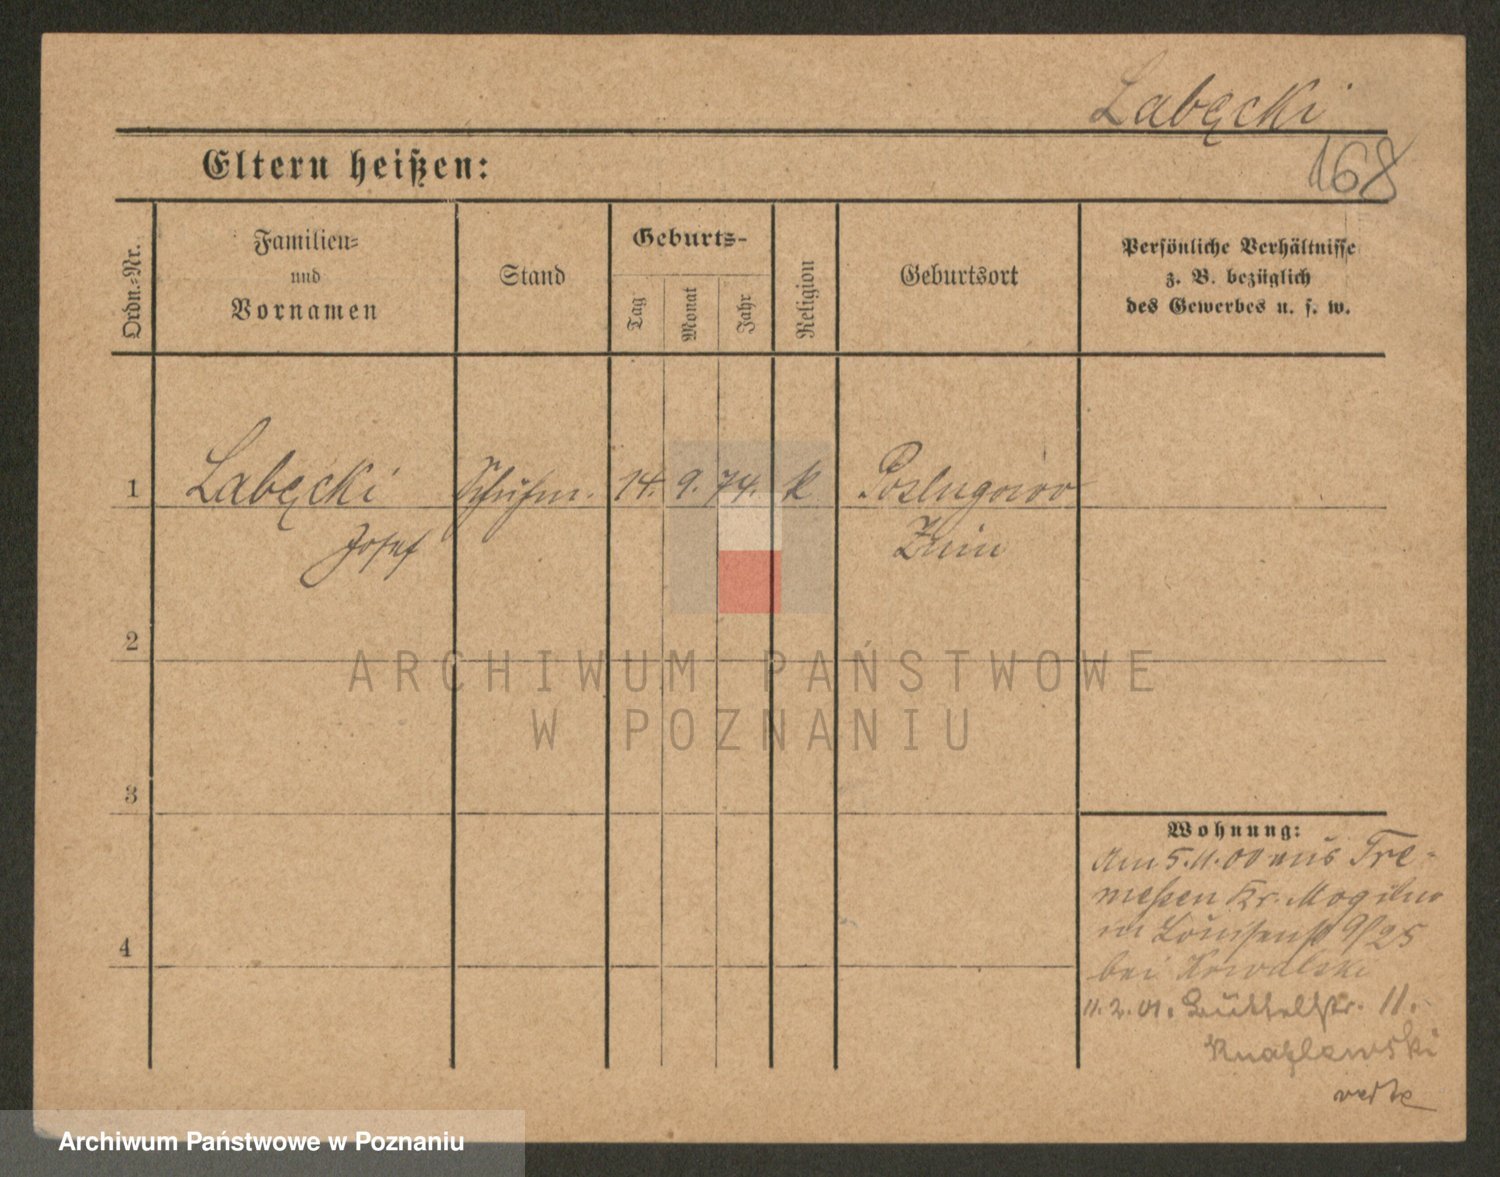 Labęcki
168
Eltern heißen:
Ordn.-Nr.
Familien-
und
Vornamen
Stand
Geburts-
Tag
Monat
Jahr
Religion
Geburtsort
Persönliche Verhältnisse
z. B. bezüglich
des Gewerbes u. s. w.
1
Labęcki
Josef
Schuhm.
14.
9.
74.
k
Poslugowo
Znin
2
3
4
ARCHIWUM PAŃSTWOWE
W POZNANIU
Wohnung:
Am 5.11.00 aus Tre-
messen Kr. Mogilno
in Louisenstr 9/25
bei Kowalski
11.2.01. Büttelstr. 11.
Archiwum Państwowe w Poznaniu